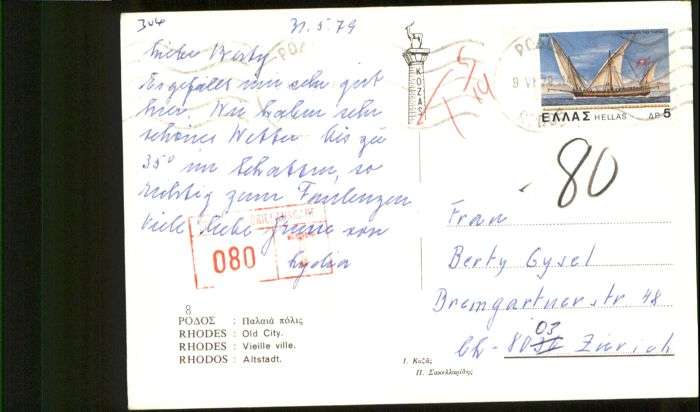 304
31.5.79
Liebe Berty
Es gefällt mir sehr gut
hier. Wir haben sehr
schönes Wetter bis zu
35° im Schatten, so
richtig zum Faulenzen
Viele liebe Grüsse von
Lydia
080
KOZAS
ΕΛΛΑΣ HELLAS ΔΡ 5
80
Frau
Berty Gysel
Bremgartnerstr 48
CH-8003 Zürich
8
ΡΟΔΟΣ : Παλαιά πόλις
RHODES : Old City.
RHODES : Vieille ville.
RHODOS : Altstadt.
Ι. Κοζάς
Π. Σακελλαρίδης